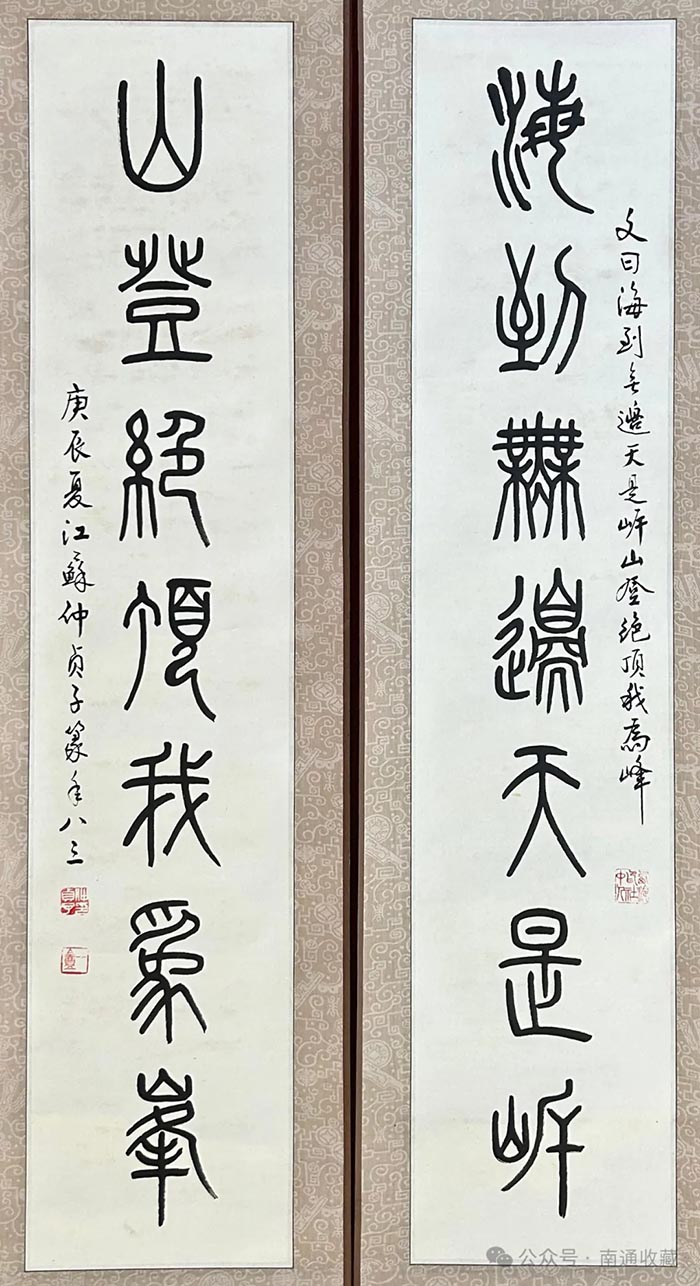 文曰海到无邊天是岸山登絶頂我為峰
海到無邊天是岸
山登絕頂我為峯
庚辰夏江蘇仲貞子篆年八三
公众号·南通收藏